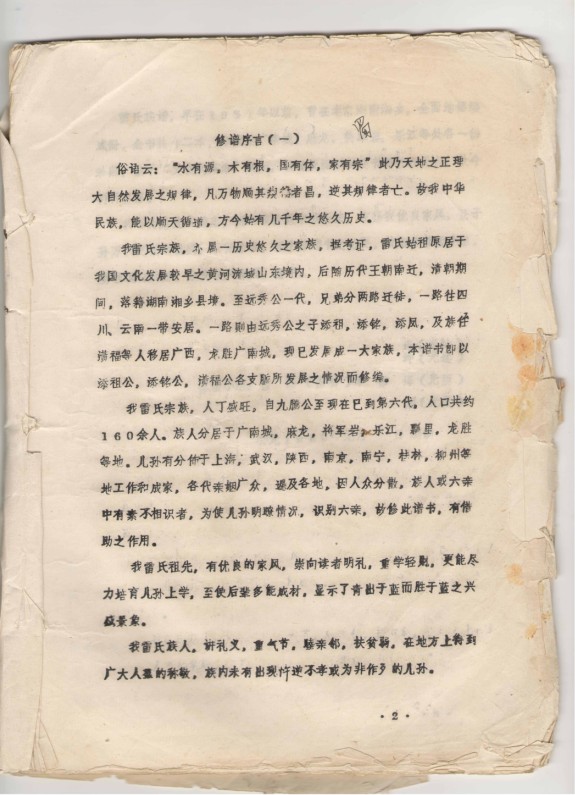 修谱序言(一)
俗语云："水有源，木有根，国有体，家有宗"此乃天地之正理
大自然发展之规律，凡万物顺其规律者昌，逆其规律者亡。故我中华
民族，能以顺天循道，方今始有几千年之悠久历史。
我雷氏宗族，亦属一历史悠久之家族，据考证，雷氏始祖原居于
我国文化发展较早之黄河流域山东境内，后随历代王朝南迁，清朝期
间，落籍湖南湘乡县埠。至远秀公一代，兄弟分两路迁徒，一路往四
川、云南一带安居。一路则由远秀公之子添祖，添铭，添凤，及族任
满福等人移居广西，龙胜广南城，现已发展成一大家族，本谱书即以
添祖公，添铭公，满福公各支脉所发展之情况而修编。
我雷氏宗族，人丁盛旺，自九腾公至现在已到第六代，人口共约
160余人。族人分居于广南城，麻龙，将军岩，乐江，里，龙胜
等地。儿孙有分佈于上海，武汉，陕西，南京，南宁，桂林，柳州等
地工作和成家，各代亲姻广众，遍及各地，因人众分散，族人或六亲
中有素不相识者，为使儿孙明瞭情况，识别六亲，故修此谱书，有借
助之作用。
我雷氏祖先，有优良的家风，崇向读者明礼，重学轻财，更能尽
力培育儿孙上学，至使后辈多能成材，显示了青出于蓝而胜于蓝之兴
盛景象。
我雷氏族人，讲礼义，重气节，睦亲邻，扶贫弱，在地方上得到
广大人群的称敬，族内未有出现忤逆不孝或为非作歹的儿孙。
·2·